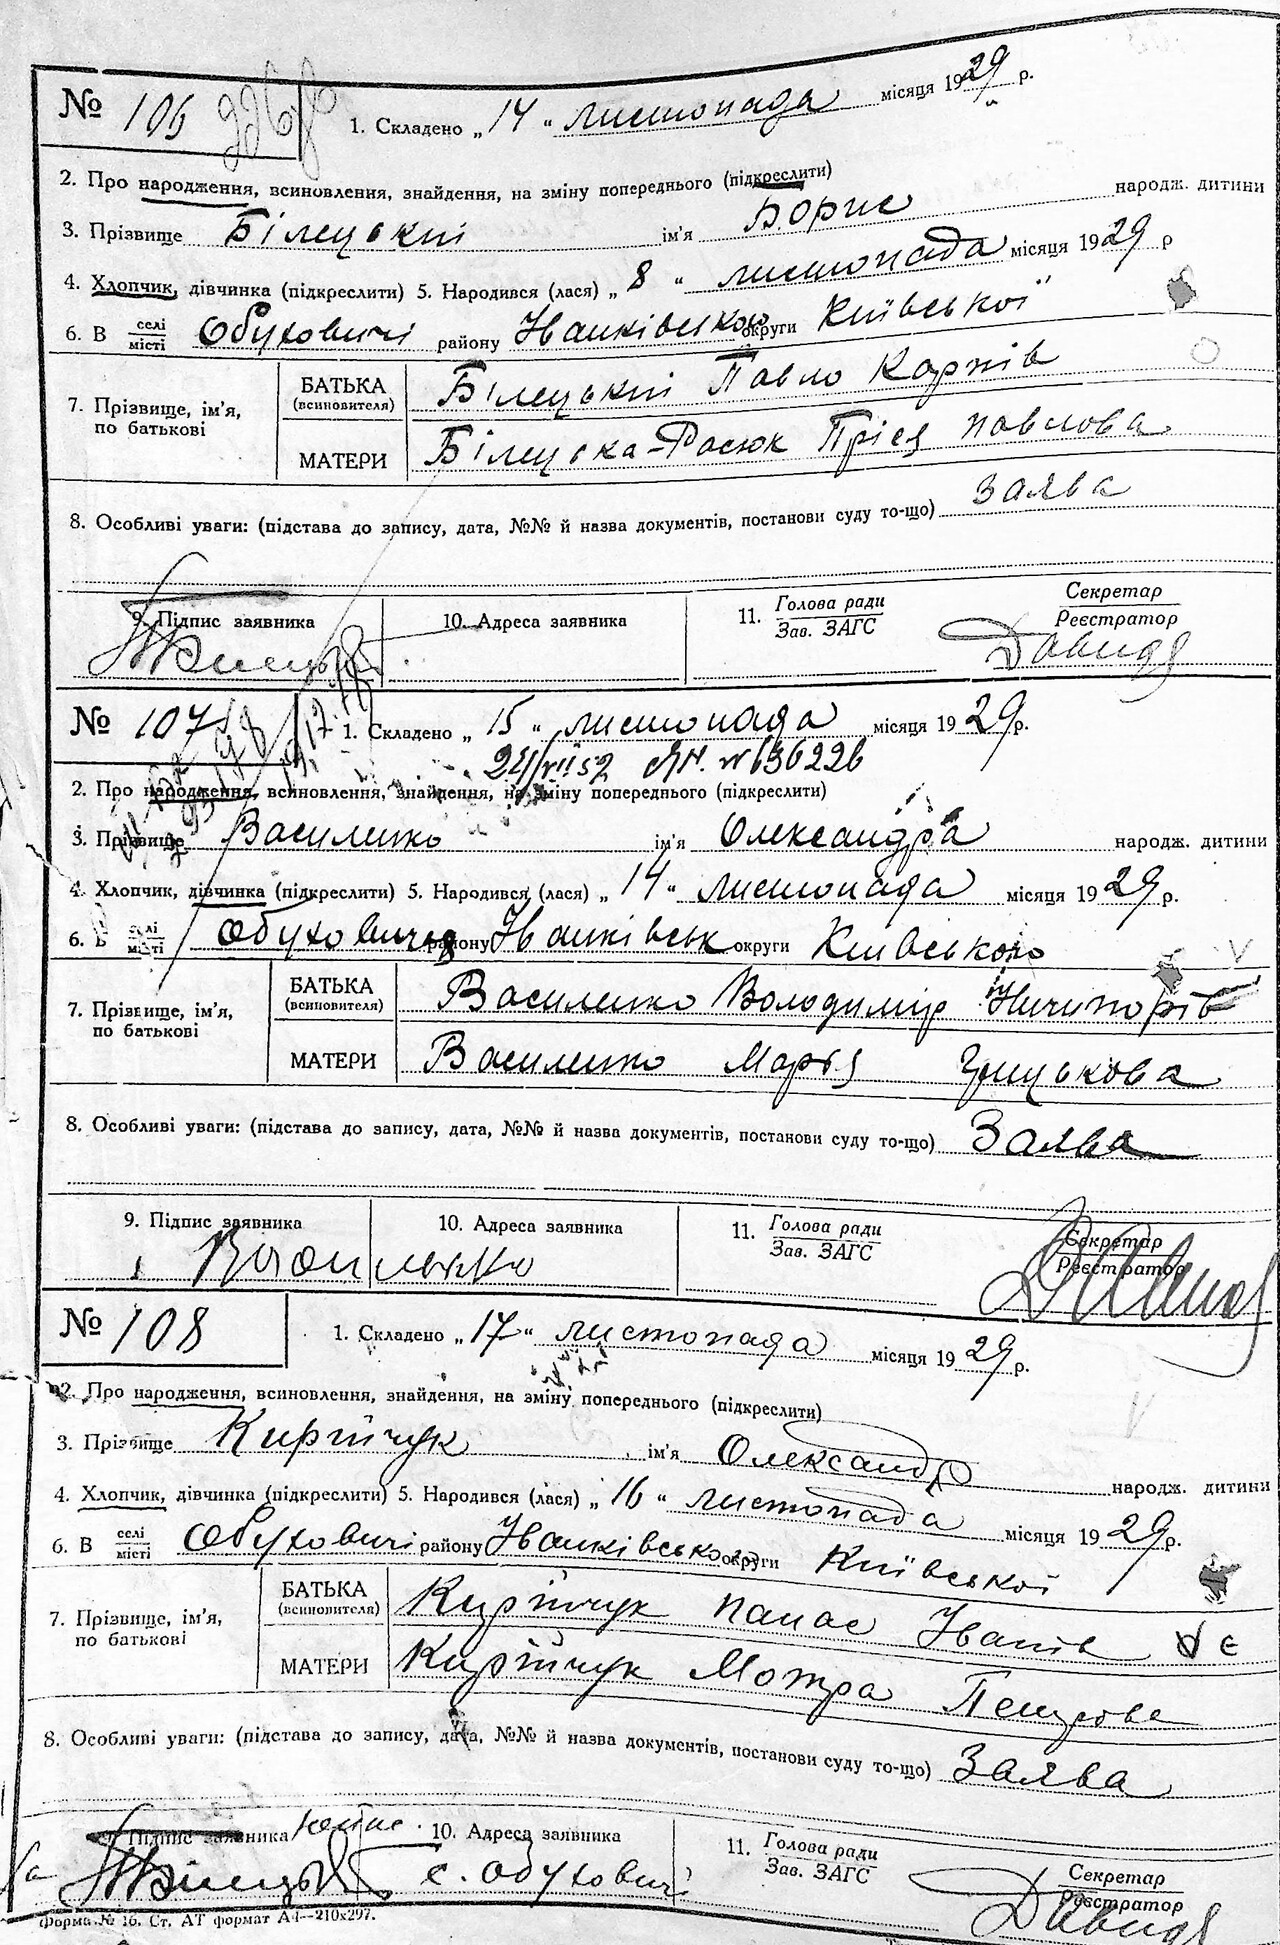 № 106
1. Складено „ 14 “ листопада місяця 1929 р.
2. Про народження, всиновлення, знайдення, на зміну попереднього (підкреслити)
3. Прізвище Білецький ім'я Борис народж. дитини
4. Хлопчик, дівчинка (підкреслити) 5. Народився (лася) „ 8 “ листопада місяця 1929 р
6. В селі місті Обуховичі району Іванківського округи Київської
7. Прізвище, ім'я, по батькові
БАТЬКА (всиновителя) Білецький Павло Карпів
МАТЕРИ Білецька- павлова
8. Особливі уваги: (підстава до запису, дата, №№ й назва документів, постанови суду то-що) Заява
9. Підпис заявника 10. Адреса заявника 11. Голова ради Зав. ЗАГС Секретар Реєстратор
№ 107
1. Складено „ 15 “ листопада місяця 1929 р.
24/VII 52 ЯН. № 636226
2. Про народження, всиновлення, знайдення, на зміну попереднього (підкреслити)
3. Прізвище Василенко ім'я Олександра народж. дитини
4. Хлопчик, дівчинка (підкреслити) 5. Народився (лася) „ 14 “ листопада місяця 1929 р.
6. В селі місті Обуховичі району Іванківськ округи Київського
7. Прізвище, ім'я, по батькові
БАТЬКА (всиновителя) Василенко Володимир Ничипорів
МАТЕРИ Василенко Марія Грицькова
8. Особливі уваги: (підстава до запису, дата, №№ й назва документів, постанови суду то-що) Заява
9. Підпис заявника 10. Адреса заявника 11. Голова ради Зав. ЗАГС Секретар Реєстратор
№ 108
1. Складено „ 17 “ листопада місяця 1929 р.
2. Про народження, всиновлення, знайдення, на зміну попереднього (підкреслити)
3. Прізвище Кирійчук ім'я Олександр народж. дитини
4. Хлопчик, дівчинка (підкреслити) 5. Народився (лася) „ 16 “ листопада місяця 1929 р.
6. В селі місті Обуховичі району Іванківського округи Київської
7. Прізвище, ім'я, по батькові
БАТЬКА (всиновителя) Кирійчук панас Іванів
МАТЕРИ Кирійчук Мотра Петрова
8. Особливі уваги: (підстава до запису, дата, №№ й назва документів, постанови суду то-що) Заява
9. Підпис заявника 10. Адреса заявника 11. Голова ради Зав. ЗАГС Секретар Реєстратор
с. Обуховичі
Форма № 16. Ст. АТ формат А4—210х297.